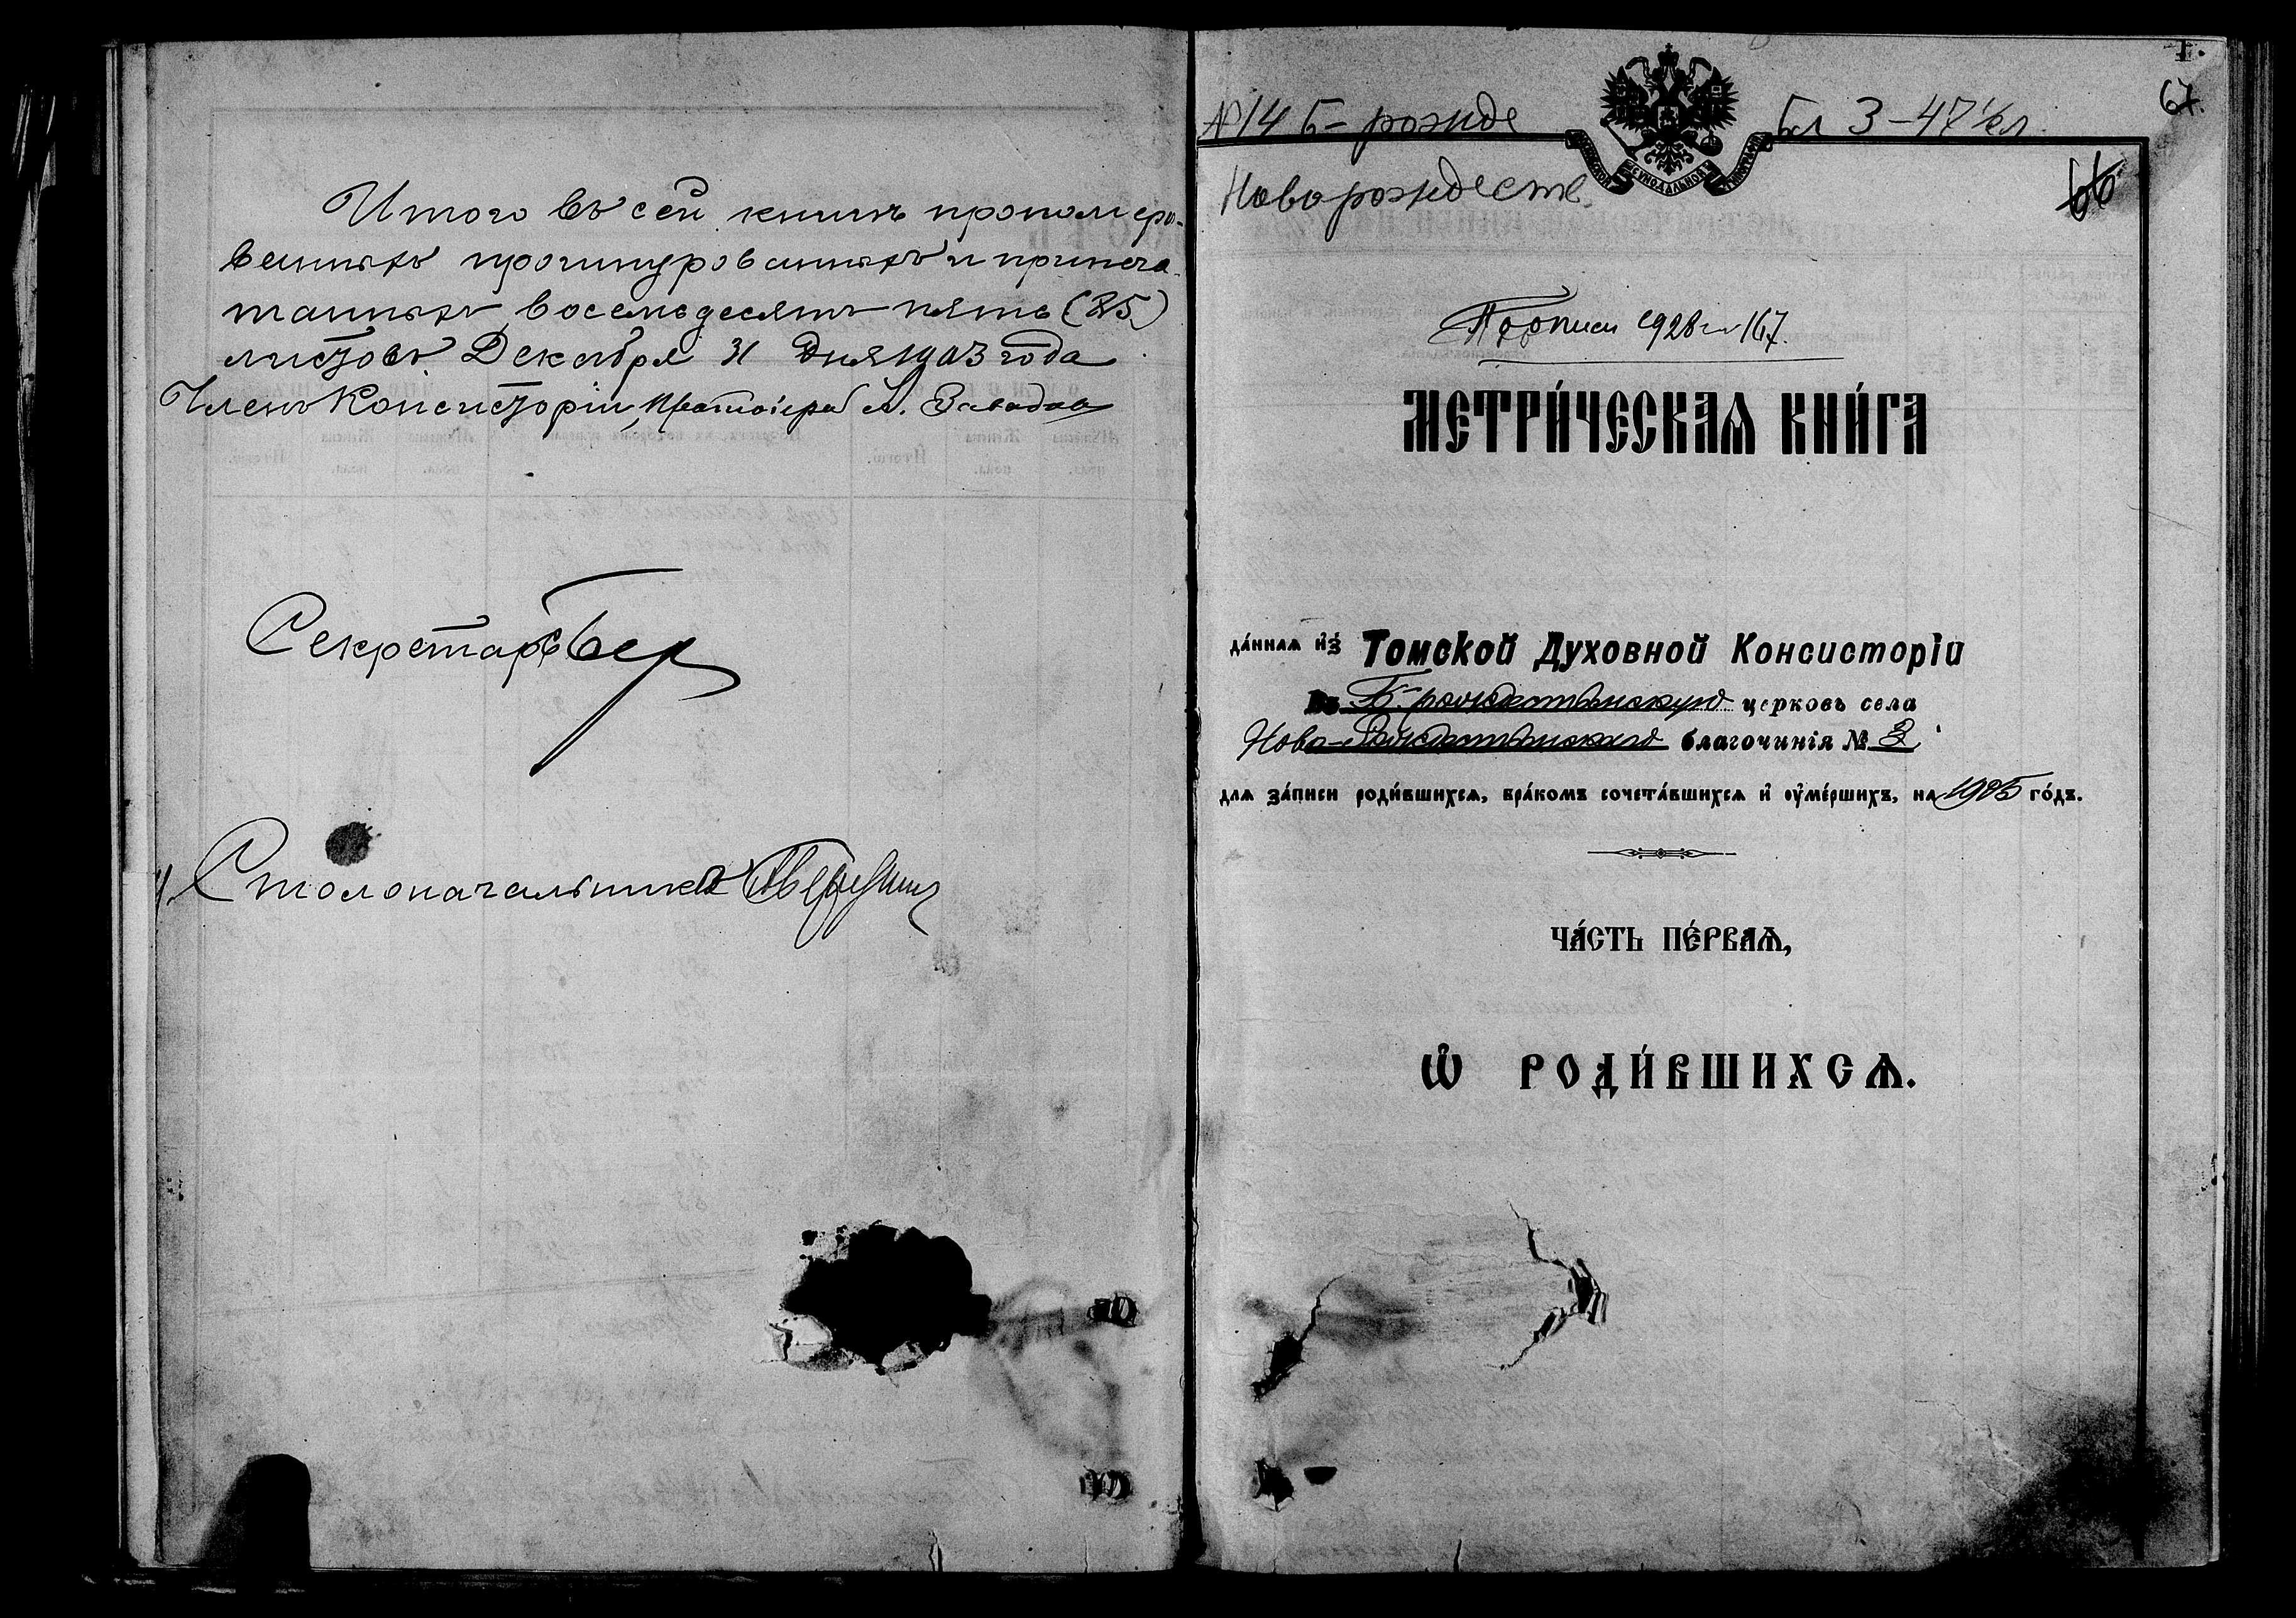 Итого въ сей книгѣ прономеро-
ванныхъ прошнурованныхъ и припеча-
танныхъ восемьдесятъ пять (85)
листовъ. Декабря 31 дня 1903 года
Членъ Консисторіи, Протоіерей А. Заводов
Секретарь
Столоначальникъ
1.
67.
№ 14 Б-рожде бл 3-47 1/2 л.
СУНОДАЛЬНОЙ
Новорождеств.
66
По описи 1928 г № 167.
МЕТРИ́ЧЕСКАѦ КНИ́ГА
да́ннаѧ и҆з̾ Томской Духовной Консисторіи
Въ Б-рождественскую церковь села
Ново-Рождественского благочинія № 3
длѧ за́писи роди́вшихсѧ, бра́комъ сочета́вшихсѧ и҆ ѹ҆ме́ршихъ, на 1905 го́дъ.
ЧА́СТЬ ПЕ́РВАѦ,
Ѡ҆ РОДИ́ВШИХСѦ.